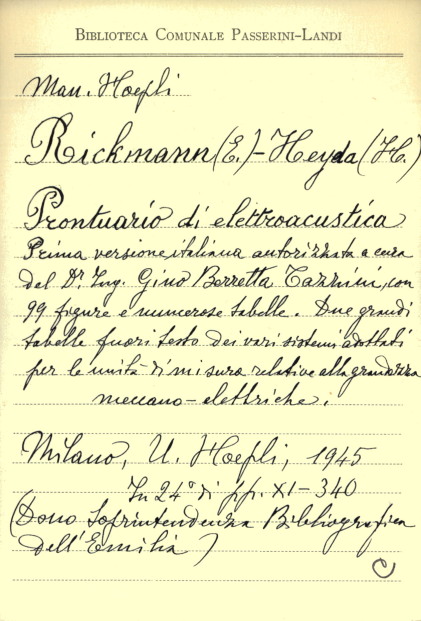 BIBLIOTECA COMUNALE PASSERINI-LANDI
Man. Hoepli
Rickmann (E.) - Heyda (H.)
Prontuario di elettroacustica
Prima versione italiana autorizzata a cura
del Dr. Ing. Gino Berretta Tazzini, con
99 figure e numerose tabelle. Due grandi
tabelle fuori testo dei vari sistemi adottati
per le unità di misura relative alla grandezza
meccano-elettriche.
Milano, U. Hoepli, 1945
In 24° di pp. XI-340
(Dono Soprintendenza Bibliografica
dell'Emilia)